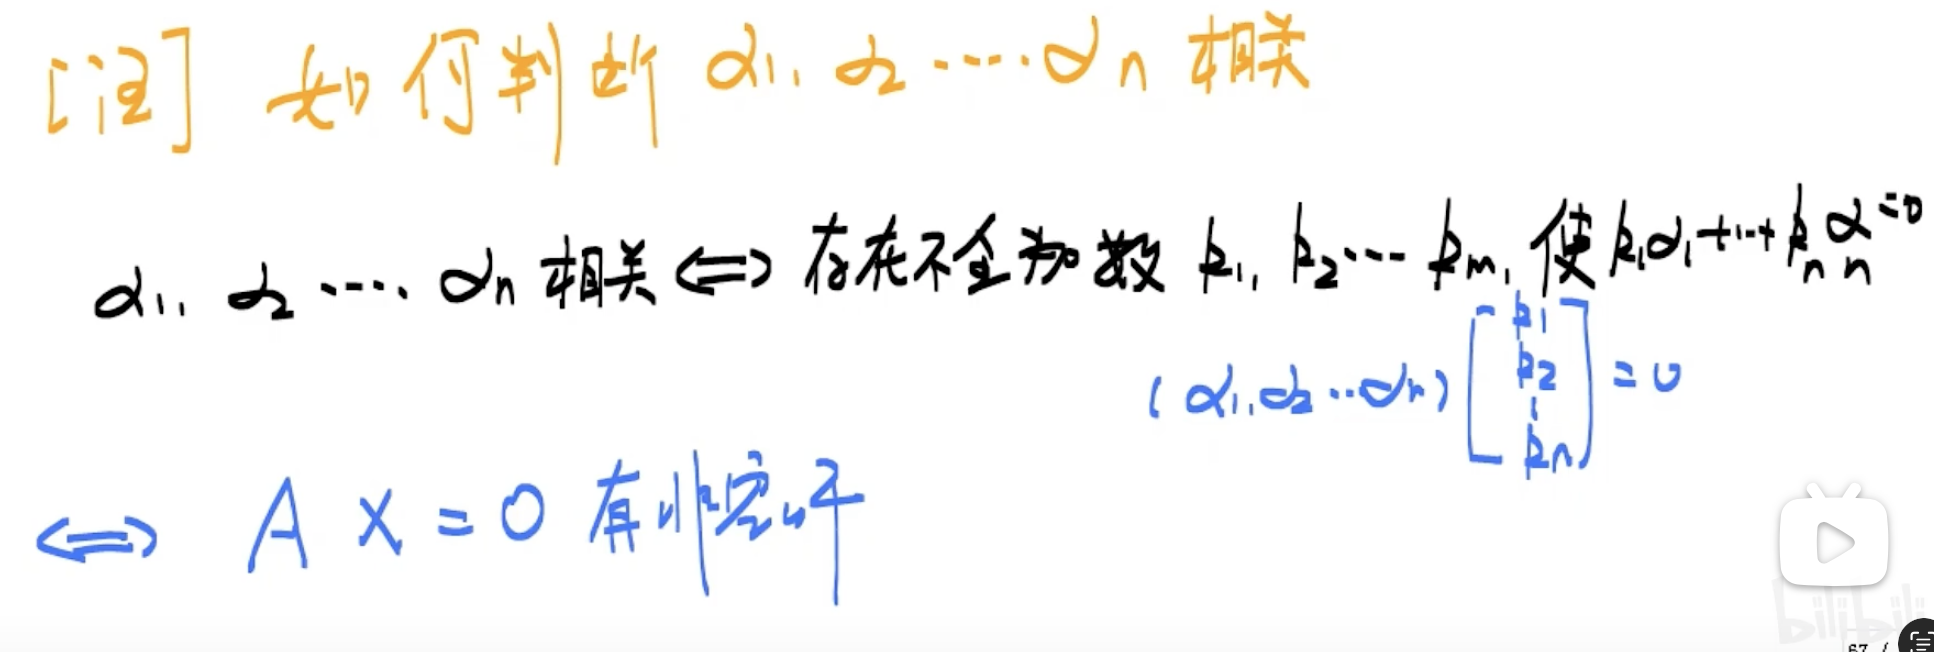 [注] 如何判断 α1, α2 ····· αn 相关
α1, α2 ····· αn 相关 ⟺ 存在不全为0数 k1, k2 ··· km, 使 k1α1+···+knαn=0
(α1, α2 ··· αn) [k1 k2 ⋮ kn] = 0
⟺ A x = 0 有非零解
bilibili
67 /